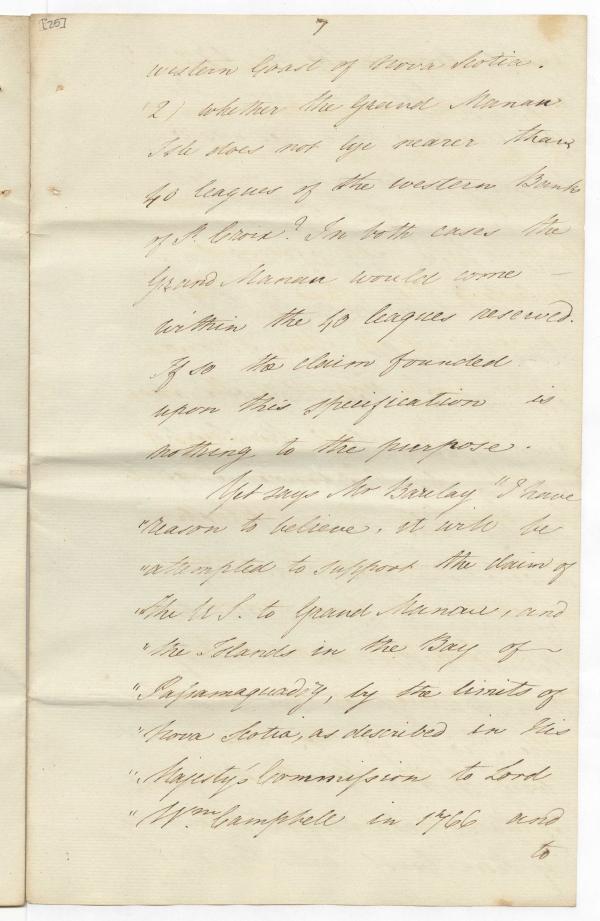 [25]
7
western Coast of Nova Scotia.
2) whether the Grand Manan
Isle does not lye nearer than
40 leagues of the western Bank
of St. Croix? In both cases the
Grand Manan would come –
within the 40 leagues reserved.
If so the claim founded
upon this specification is
nothing to the purpose.
Yet says Mr Barclay "I have
"reason to believe, it will be
"attempted to support the claim of
"the U S. to Grand Manan, and
"the Islands in the Bay of –
"Passamaquaddy, by the limits of
"Nova Scotia, as described in His
"Majesty's Commission to Lord
"Wm Campbell in 1766 and
to